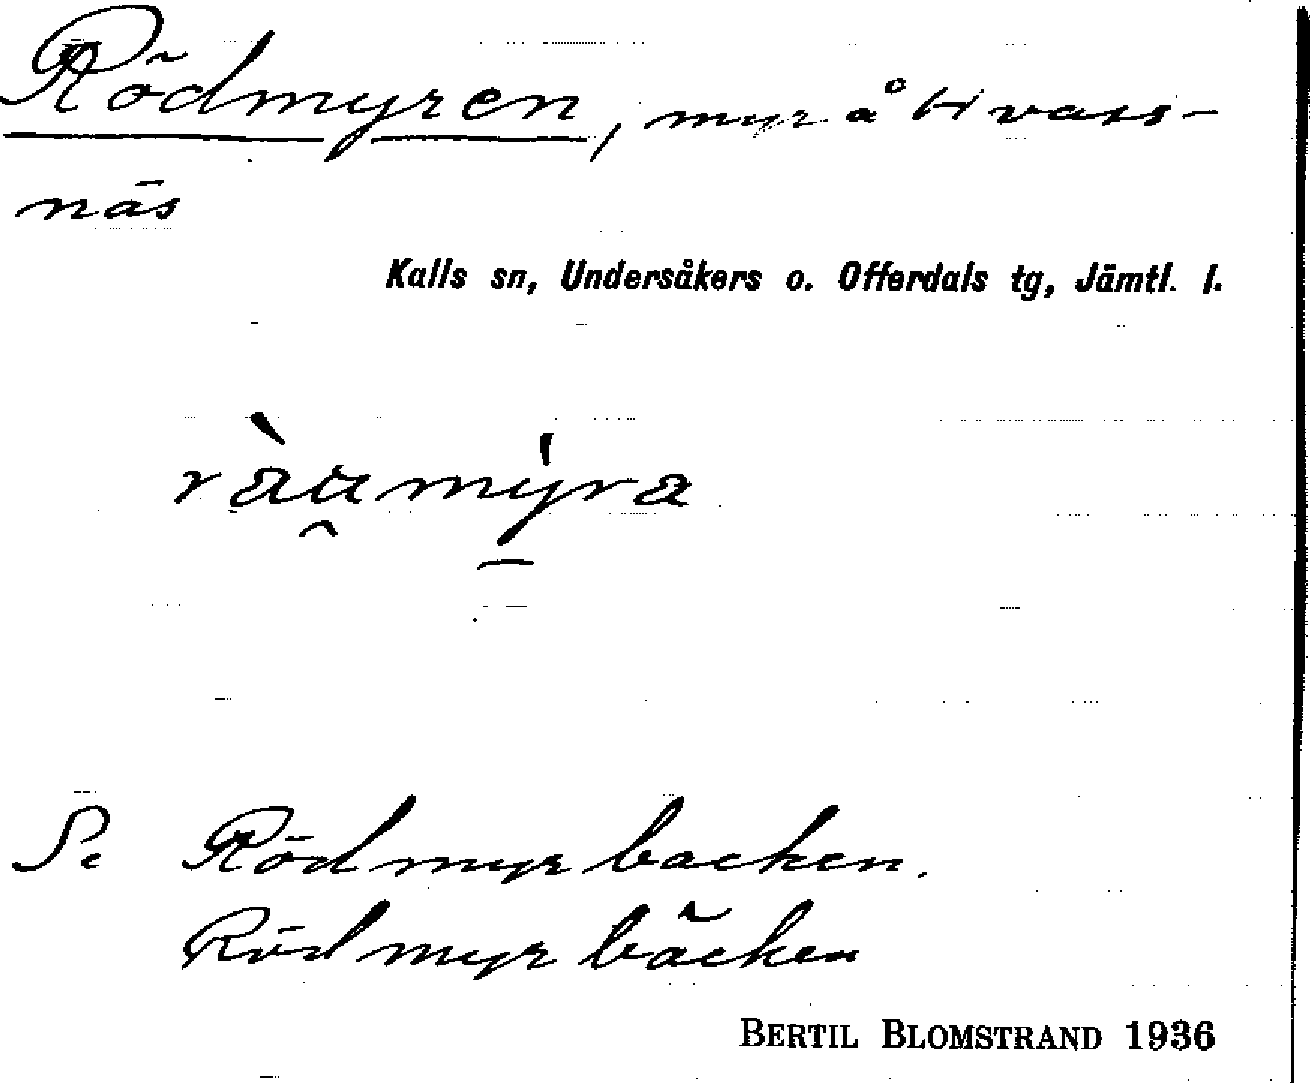 Rödmyren, myr å Hivass-
näs
Kalls sn, Undersåkers o. Offerdals tg, Jämtl. l.
Se Rödmyrbacken.
Rödmyrbäcken
BERTIL BLOMSTRAND 1936